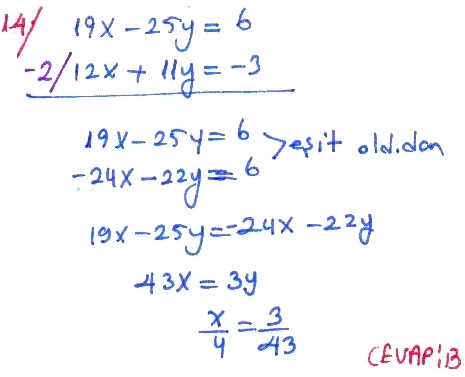 14/ 19x - 25y = 6
-2/ 12x + 11y = -3
19x - 25y = 6 > eşit old.dan
-24x - 22y = 6
19x - 25y = -24x - 22y
43x = 3y
x/y = 3/43
CEVAP:B